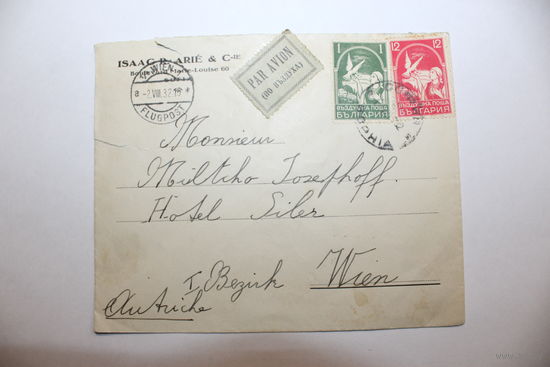 ISAAC R. ARIÉ & Cᴵᴱ
Boulevard Marie-Louise 60
WIEN
-2.VIII.32.
FLUGPOST
PAR AVION
(ПО ВЪЗДУХА)
1
1
ВЪЗДУШНА ПОЩА
БЪЛГАРИЯ
12
12
ВЪЗДУШНА ПОЩА
БЪЛГАРИЯ
Monsieur
Miltcho Josephoff.
Hotel Siler
I. Bezirk Wien
Autriche